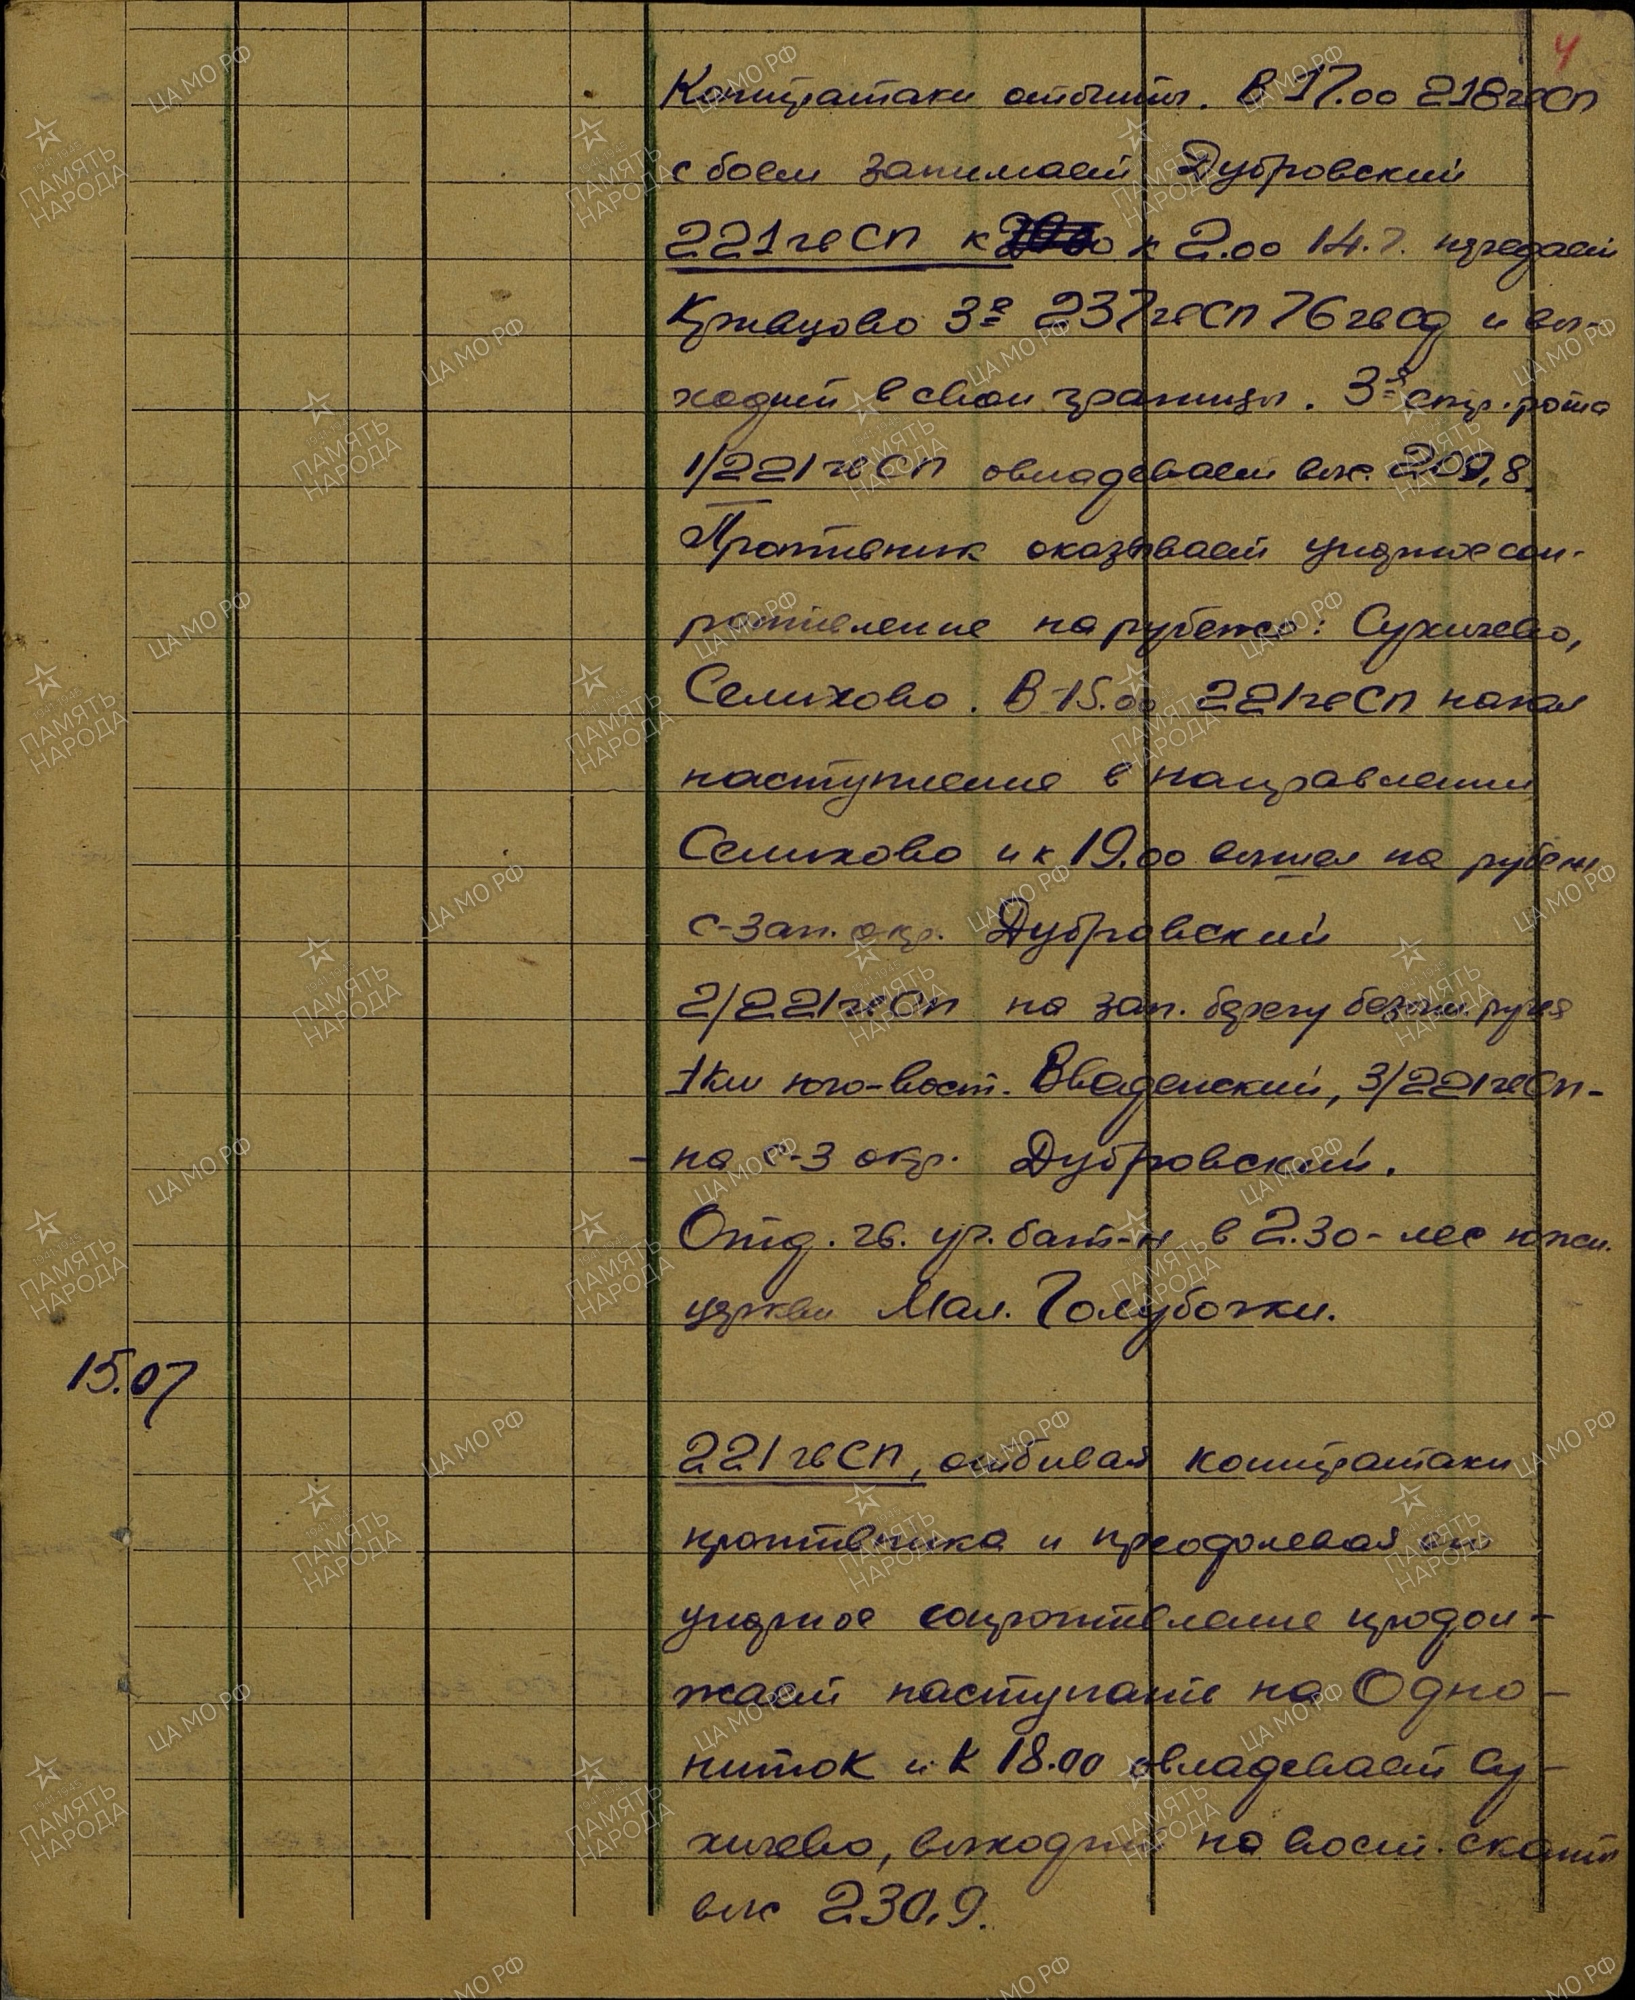 4
Контратаки отбиты. В 17.00 218 гв СП
с боем занимает Дубровский
221 гв СП к к 2.00 14.7. передает
Кривцово 237 гв СП 76 гв СД и вы-
ходит в свои границы. 3я стр. рота
1/221 гв СП овладевает выс. 209,8.
Противник оказывает упорное соп-
ротивление на рубеже: Сухичево,
Селихово. В 15.00 221 гв СП начал
наступление в направлении
Селихово и к 19.00 вышел на рубеж
с-зап. окр. Дубровский
2/221 гв СП на зап. берегу безым. ручья
1 км юго-вост. Введенский, 3/221 гв СП -
- на с-з окр. Дубровский.
Отд. гв. уч. бат-н в 2.30 - лес южн.
церкви Мал. Голубочки.
15.07
221 гв СП, отбивая контратаки
противника и преодолевая его
упорное сопротивление продол-
жает наступать на Одно-
литок и к 18.00 овладевает Су-
хичево, выходит на вост. скаты
выс 230,9.